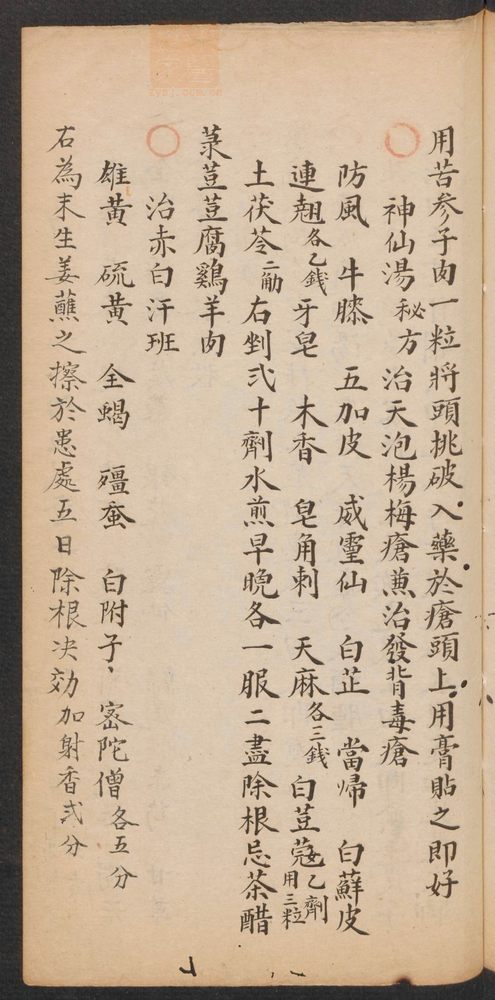 用苦參子肉一粒將頭挑破入藥於瘡頭上用膏貼之即好
神仙湯秘方治天泡楊梅瘡蒸治發背毒瘡
防風 牛膝 五加皮 威靈仙 白芷 當歸 白蘚皮
連翹各乙錢牙皂 木香 皂角刺 天麻各三錢白荳蔻乙劑用三粒
土茯苓二觔右剉弍十劑水煎早晚各一服二盡除根忌茶醋
菉荳荳腐鷄羊肉
治赤白汗班
雄黄 硫黄 全蝎 殭蚕 白附子 宻陀僧各五分
右為末生姜蘸之擦於患處五日除根决効加射香弍分